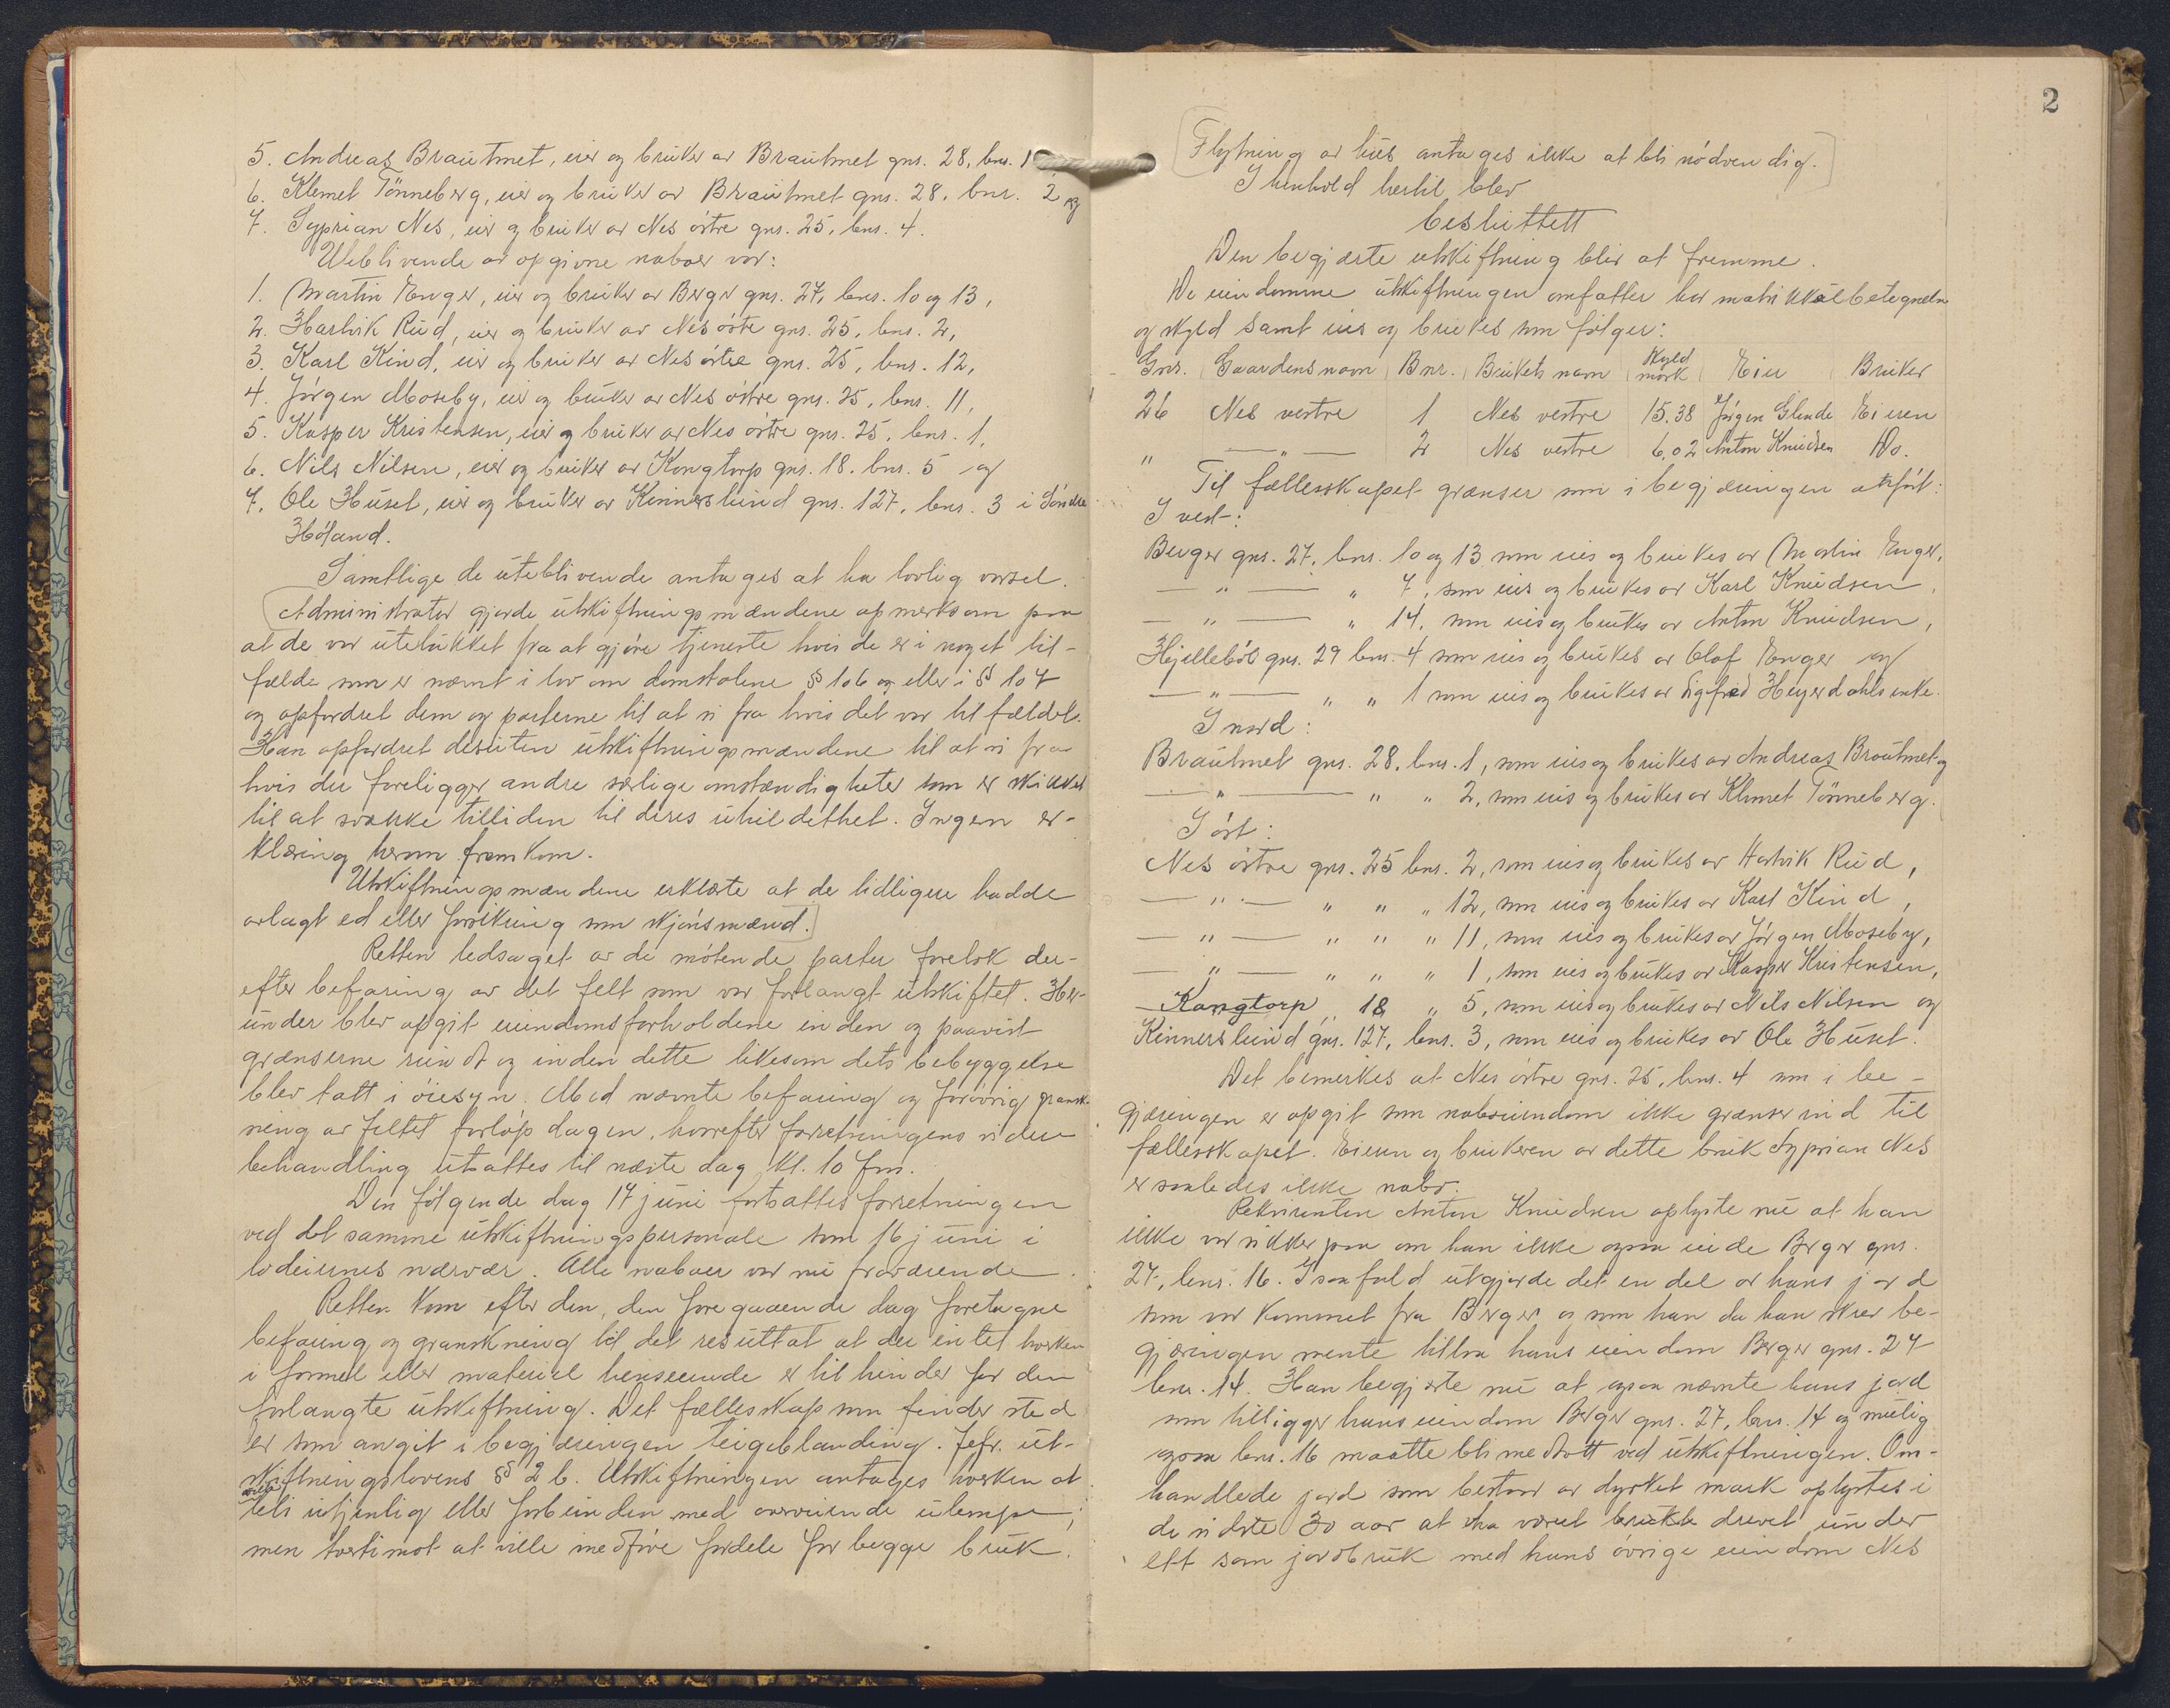 5. Andreas Brautmet, eier og bruker av Brautmet gnr. 28, bnr. 1
6. Klemet Tönneberg, eier og bruker av Brautmet gnr. 28, bnr. 2 og
7. Syprian Nes, eier og bruker av Nes östre gnr. 25, bnr. 4.
Uteblivende av opgivne naboer var:
1. Martin Enger, eier og bruker av Berger gnr. 27, bnr. 10 og 13,
2. Hartvik Rud, eier og bruker av Nes östre gnr. 25, bnr. 2,
3. Karl Kind, eier og bruker av Nes östre gnr. 25, bnr. 12,
4. Jörgen Moseby, eier og bruker av Nes östre gnr. 25, bnr. 11,
5. Kasper Kristensen, eier og bruker av Nes östre gnr. 25, bnr. 1,
6. Nils Nilsen, eier og bruker av Kongtorp gnr. 18, bnr. 5 og
7. Ole Huset, eier og bruker av Kinnerslund gnr. 127, bnr. 3 i Söndre
Höland.
Samtlige de uteblivende antages at ha lovlig varsel.
Administrator gjorde utskiftningsmændene opmerksom paa
at de var utelukket fra at gjöre tjeneste hvis de er i noget til-
fælde som er nævnt i lov om domstolene § 106 og eller i § 107
og opfordret dem og parterne til at si fra hvis det var tilfældet.
Han opfordret desuten utskiftningsmændene til at si fra
hvis der foreligger andre særlige omstændigheter som er skikket
til at svække tilliden til deres uhildethet. Ingen er-
klæring herom fremkom.
Utskiftningsmændene erklærte at de tidligere hadde
avlagt ed eller forsikring som skjönsmænd.
Retten ledsaget av de mötende parter foretok der-
efter befaring av det felt som var forlangt utskiftet. Her-
under blev opgit eiendomsforholdene inden og paavist
grænserne rundt og inden dette likesom dets bebyggelse
blev tatt i öiesyn. Med nævnte befaring og forövrig gransk-
ning av feltet forlöp dagen, hvorefter forretningens videre
behandling utsattes til næste dag kl. 10 fm.
Den fölgende dag 17 juni fortsattes forretningen
ved det samme utskiftningspersonale som 16 juni i
lodeiernes nærvær. Alle naboer var nu fraværende.
Retten kom efter den, den foregaaende dag foretagne
befaring og granskning til det resultat at der intet hverken
i formel eller materiel henseende er til hinder for den
forlangte utskiftning. Det fællesskap som finder sted
er som angit i begjæringen teigeblanding. Jefr. ut-
skiftningslovens § 2 b. Utskiftningen antages hverken at
ville
bli utjenlig eller forbunden med overveiende ulempe;
men tvertimot at ville medföre fordele for begge bruk.
2
Flytning av hus antages ikke at bli nödvendig.
I henhold hertil blev
besluttett
Den begjærte utskiftning blir at fremme.
De eiendomme utskiftningen omfatter har matrikkelbetegnelse
og skyld samt eies og brukes som fölger:
Gnr. Gaardens navn Bnr. Brukets navn Skyld mark Eier Bruker
26 Nes vestre 1 Nes vestre 15.38 Jörgen Glende Eieren
" — " — 2 Nes vestre 6.02 Anton Knudsen Do.
Til fællesskapet grænser som i begjæringen anfört:
I vest:
Berger gnr. 27, bnr. 10 og 13 som eies og brukes av Martin Enger,
— " — " 7, som eies og brukes av Karl Knudsen,
— " — " 14, som eies og brukes av Anton Knudsen,
Hjelleböl gnr. 29 bnr. 4 som eies og brukes av Olaf Enger og
— " — " " 1 som eies og brukes av Sigfred Heyerdahls enke.
I nord:
Brautmet gnr. 28, bnr. 1, som eies og brukes av Andreas Brautmet og
— " — " " 2, som eies og brukes av Klemet Tönneberg.
I öst:
Nes östre gnr. 25 bnr. 2, som eies og brukes av Hartvik Rud,
— " — " " " 12, som eies og brukes av Karl Kind,
— " — " " " 11, som eies og brukes av Jörgen Moseby,
— " — " " " 1, som eies og brukes av Kasper Kristensen,
Kongtorp " 18 " 5, som eies og brukes av Nils Nilsen og
Kinnerslund gnr. 127, bnr. 3, som eies og brukes av Ole Huset.
Det bemerkes at Nes östre gnr. 25, bnr. 4 som i be-
gjæringen er opgit som naboeiendom ikke grænser ind til
fællesskapet. Eieren og brukeren av dette bruk Syprian Nes
er saaledes ikke nabo.
Rekvirenten Anton Knudsen oplyste nu at han
ikke var sikker paa om han ikke ogsaa eide Berger gnr.
27, bnr. 16. I saafald utgjorde det en del av hans jord
som var kommet fra Berger og som han da han skrev be-
gjæringen mente tillaa hans eiendom Berger gnr. 27
bnr. 14. Han begjærte nu at ogsaa nævnte hans jord
som tilligger hans eiendom Berger gnr. 27, bnr. 14 og mulig
ogsaa bnr. 16 maatte bli medtatt ved utskiftningen. Om-
handlede jord som bestaar av dyrket mark oplystes i
de sidste 30 aar at ha været brukte drevet under
ett som jordbruk med hans övrige eiendom Nes